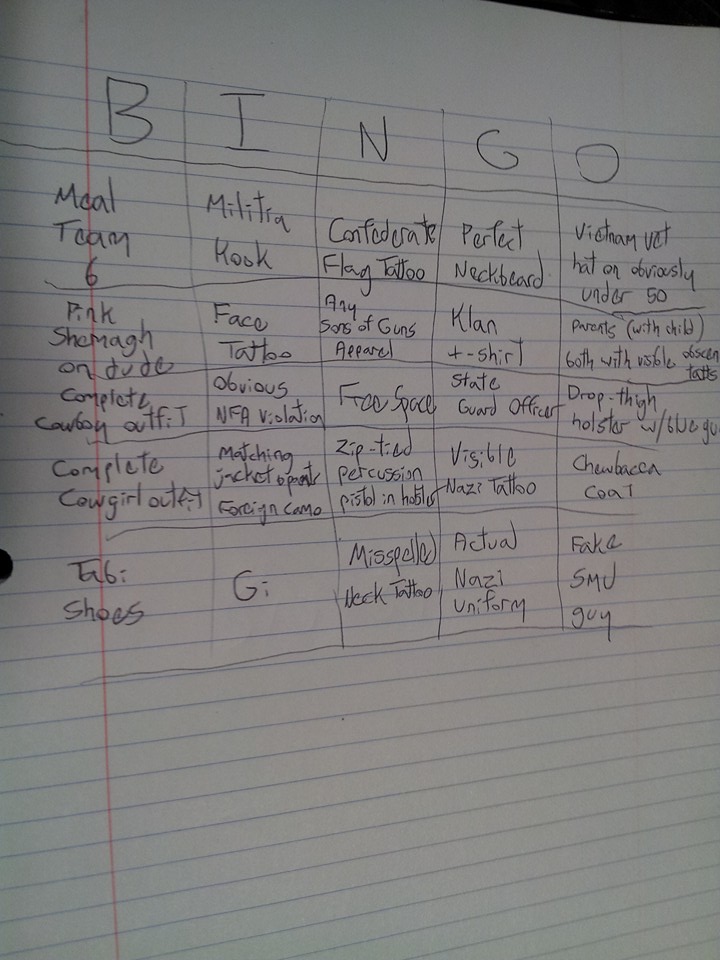 B I N G O
Meal Team 6
Militia Kook
Confederate Flag Tattoo
Perfect Neckbeard
Vietnam vet hat on obviously under 50
Pink Shemagh on dude
Face Tattoo
Any Sons of Guns Apparel
Klan t-shirt
Parents (with child) both with visible obscen tatts
Complete Cowboy outfit
Obvious NFA Violation
Free Space
State Guard Officer
Drop-thigh holster w/blue gu
Complete Cowgirl outfit
Matching jacket & pants Foreign camo
Zip-tied percussion pistol in holster
Visible Nazi Tattoo
Chewbacca Coat
Tabi Shoes
Gi
Misspelled Neck Tattoo
Actual Nazi Uniform
Fake SMU guy